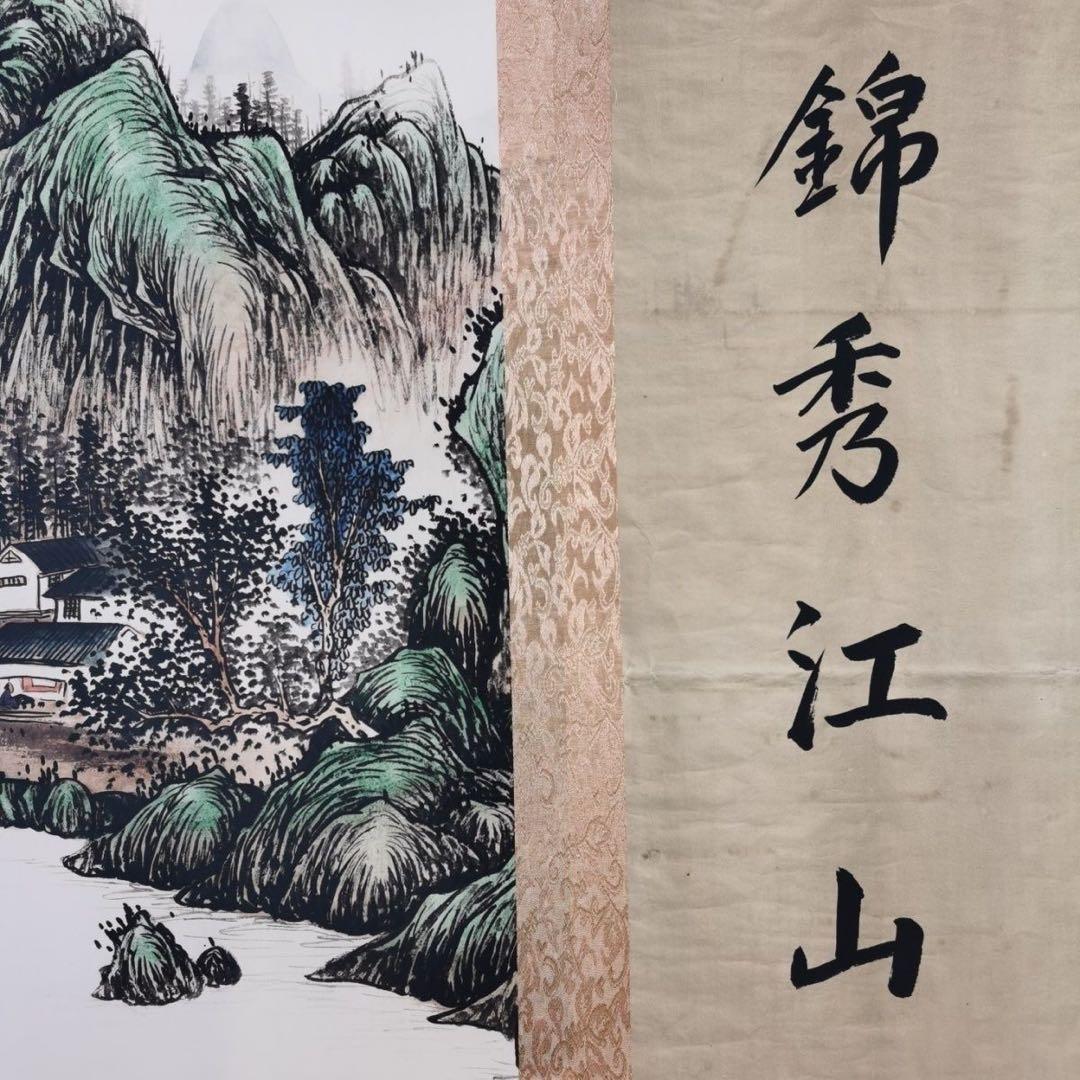 錦秀江山